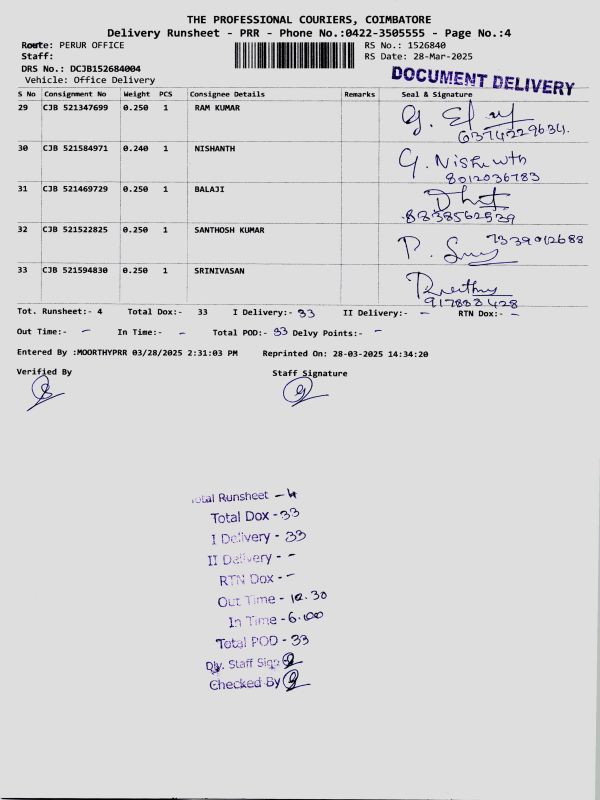 THE PROFESSIONAL COURIERS, COIMBATORE
Delivery Runsheet - PRR - Phone No.:0422-3505555 - Page No.:4
Route: PERUR OFFICE
RS No.: 1526840
Staff:
RS Date: 28-Mar-2025
DRS No.: DCJB152684004
Vehicle: Office Delivery
DOCUMENT DELIVERY
S No Consignment No Weight PCS Consignee Details Remarks Seal & Signature
29 CJB 521347699 0.250 1 RAM KUMAR
6374229634.
30 CJB 521584971 0.240 1 NISHANTH G. Nishanth
8012036783
31 CJB 521469729 0.250 1 BALAJI
8838562539
32 CJB 521522825 0.250 1 SANTHOSH KUMAR 7339012688
33 CJB 521594830 0.250 1 SRINIVASAN
917833428
Tot. Runsheet:- 4 Total Dox:- 33 I Delivery:- 33 II Delivery:- - RTN Dox:- -
Out Time:- - In Time:- - Total POD:- 33 Delvy Points:- -
Entered By :MOORTHYPRR 03/28/2025 2:31:03 PM Reprinted On: 28-03-2025 14:34:20
Verified By Staff Signature
Total Runsheet - 4
Total Dox - 33
I Delivery - 33
II Delivery - -
RTN Dox - -
Out Time - 12.30
In Time - 6.00
Total POD - 33
Dly. Staff Sign
Checked By